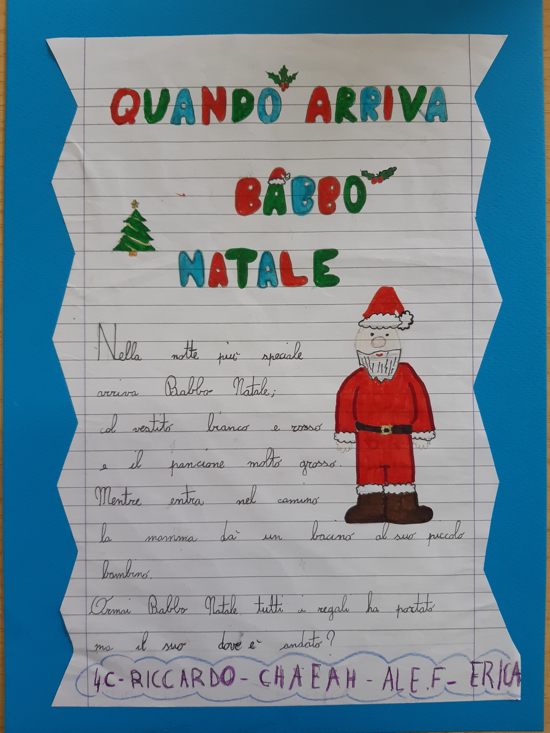 QUANDO ARRIVA
BABBO
NATALE
Nella notte più speciale
arriva Babbo Natale;
col vestito bianco e rosso
e il pancione molto grosso.
Mentre entra nel camino
la mamma dà un bacino al suo piccolo
bambino.
Ormai Babbo Natale tutti i regali ha portato
ma il suo dove è andato?
4C-RICCARDO-CHAEAH-ALE.F-ERICA